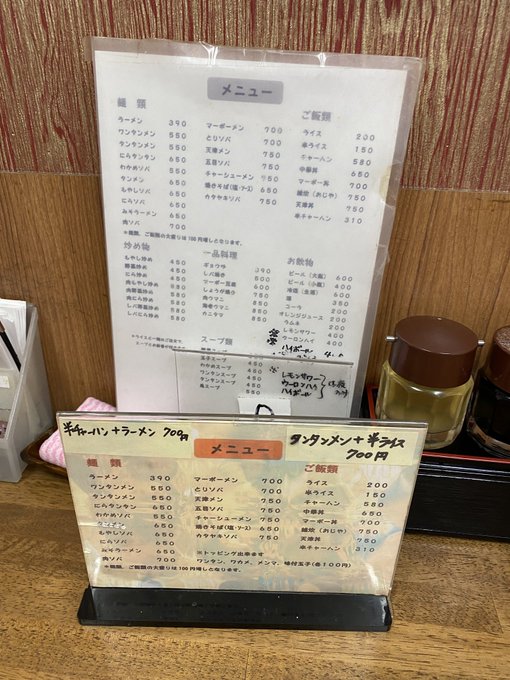 メニュー
麺 類
ラーメン 390
ワンタンメン 550
タンタンメン 550
にらタンタン 650
わかめソバ 550
タンメン 650
もやしソバ 650
にらソバ 650
みそラーメン 650
肉ソバ 700
マーボーメン 700
とりソバ 700
天津メン 750
五目ソバ 750
チャーシューメン 750
焼きそば(塩・ソース) 650
カタヤキソバ 750
ご飯類
ライス 200
半ライス 150
チャーハン 580
中華丼 650
マーボー丼 700
雑炊(おじや) 550
天津丼 750
半チャーハン 310
*麺類、ご飯類の大盛りは100円増しとなります。
炒め物
もやし炒め 450
野菜炒め 450
にら炒め 450
肉もやし炒め
肉野菜炒め
肉にら炒め
レバ野菜炒め
一品料理
ギョウザ 390
レバ焼き 500
マーボー豆腐
しょうが焼き
肉ウマニ
海老ウマニ
カニタマ
お飲物
ビール(大瓶) 600
ビール(小瓶) 400
コーラ
オレンジジュース 200
ラムネ
レモンサワー 400
ウーロンハイ 400
ハイボール
スープ類
玉子スープ
わかめスープ
ワンタンスープ 450
タンタンスープ 450
肉スープ 550
レモンサワー
ウーロンハイ
ハイボール
半チャーハン+ラーメン 700円
タンタンメン+半ライス
700円
メニュー
麺 類
ラーメン 390
ワンタンメン 550
タンタンメン 550
にらタンタン 650
わかめソバ 550
タンメン 650
もやしソバ 650
にらソバ 650
みそラーメン 650
肉ソバ 700
マーボーメン 700
とりソバ 700
天津メン 750
五目ソバ 750
チャーシューメン 750
焼きそば(塩・ソース) 650
カタヤキソバ 750
ご飯類
ライス 200
半ライス 150
チャーハン 580
中華丼 650
マーボー丼 700
雑炊(おじや) 550
天津丼 750
半チャーハン 310
*トッピング出来ます
ワンタン、ワカメ、メンマ、味付玉子(各100円)
*麺類、ご飯類の大盛りは100円増しとなります。